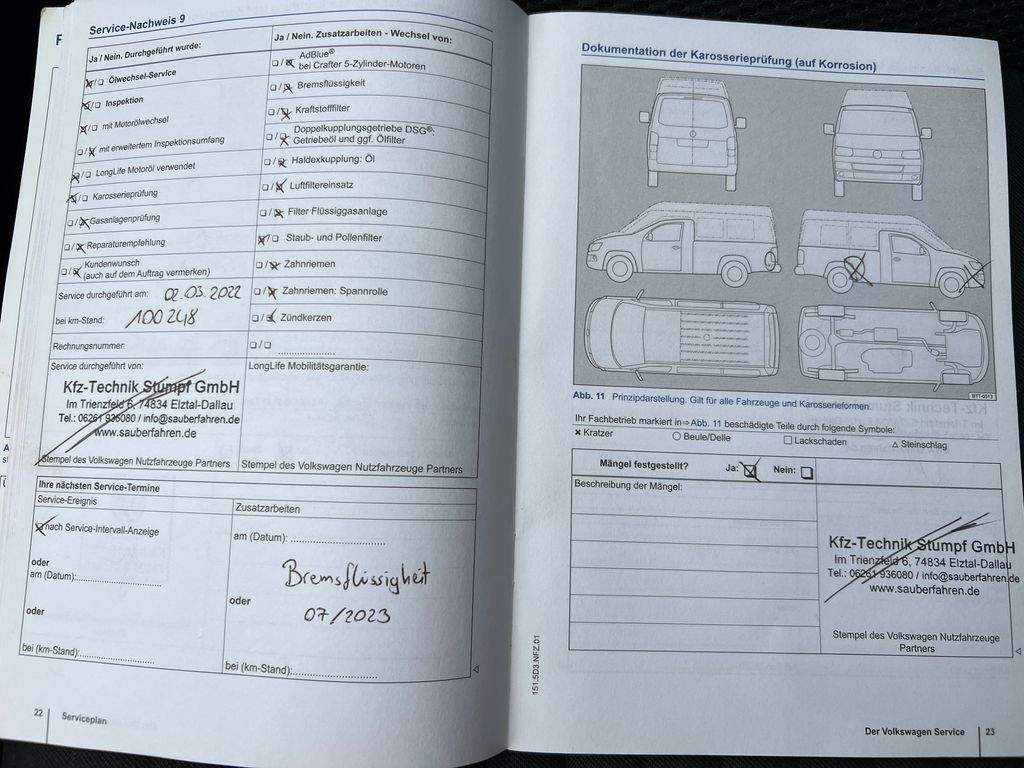 Service-Nachweis 9
Ja / Nein. Durchgeführt wurde:
Ölwechsel-Service
Inspektion
mit Motorölwechsel
mit erweitertem Inspektionsumfang
LongLife Motoröl verwendet
Karosserieprüfung
Gasanlagenprüfung
Reparaturempfehlung
Kundenwunsch
(auch auf dem Auftrag vermerken)
Service durchgeführt am: 02.03.2022
bei km-Stand: 100248
Rechnungsnummer:
Service durchgeführt von:
Kfz-Technik Stumpf GmbH
Im Trienzfeld 6, 74834 Elztal-Dallau
Tel.: 06261 936080 / info@sauberfahren.de
www.sauberfahren.de
Stempel des Volkswagen Nutzfahrzeuge Partners
Ja / Nein. Zusatzarbeiten - Wechsel von:
AdBlue®
bei Crafter 5-Zylinder-Motoren
Bremsflüssigkeit
Kraftstofffilter
Doppelkupplungsgetriebe DSG®:
Getriebeöl und ggf. Ölfilter
Haldexkupplung: Öl
Luftfiltereinsatz
Filter Flüssiggasanlage
Staub- und Pollenfilter
Zahnriemen
Zahnriemen: Spannrolle
Zündkerzen
LongLife Mobilitätsgarantie:
Stempel des Volkswagen Nutzfahrzeuge Partners
Ihre nächsten Service-Termine
Service-Ereignis
nach Service-Intervall-Anzeige
oder
am (Datum):
oder
bei (km-Stand):
Zusatzarbeiten
am (Datum):
Bremsflüssigkeit
oder
07/2023
bei (km-Stand):
22 Serviceplan
Dokumentation der Karosserieprüfung (auf Korrosion)
BTT-0513
Abb. 11 Prinzipdarstellung. Gilt für alle Fahrzeuge und Karosserieformen.
Ihr Fachbetrieb markiert in ⇒ Abb. 11 beschädigte Teile durch folgende Symbole:
× Kratzer ○ Beule/Delle □ Lackschaden △ Steinschlag
Mängel festgestellt? Ja: Nein:
Beschreibung der Mängel:
Kfz-Technik Stumpf GmbH
Im Trienzfeld 6, 74834 Elztal-Dallau
Tel.: 06261 936080 / info@sauberfahren.de
www.sauberfahren.de
Stempel des Volkswagen Nutzfahrzeuge
Partners
151.5D3.NFZ.01
Der Volkswagen Service 23